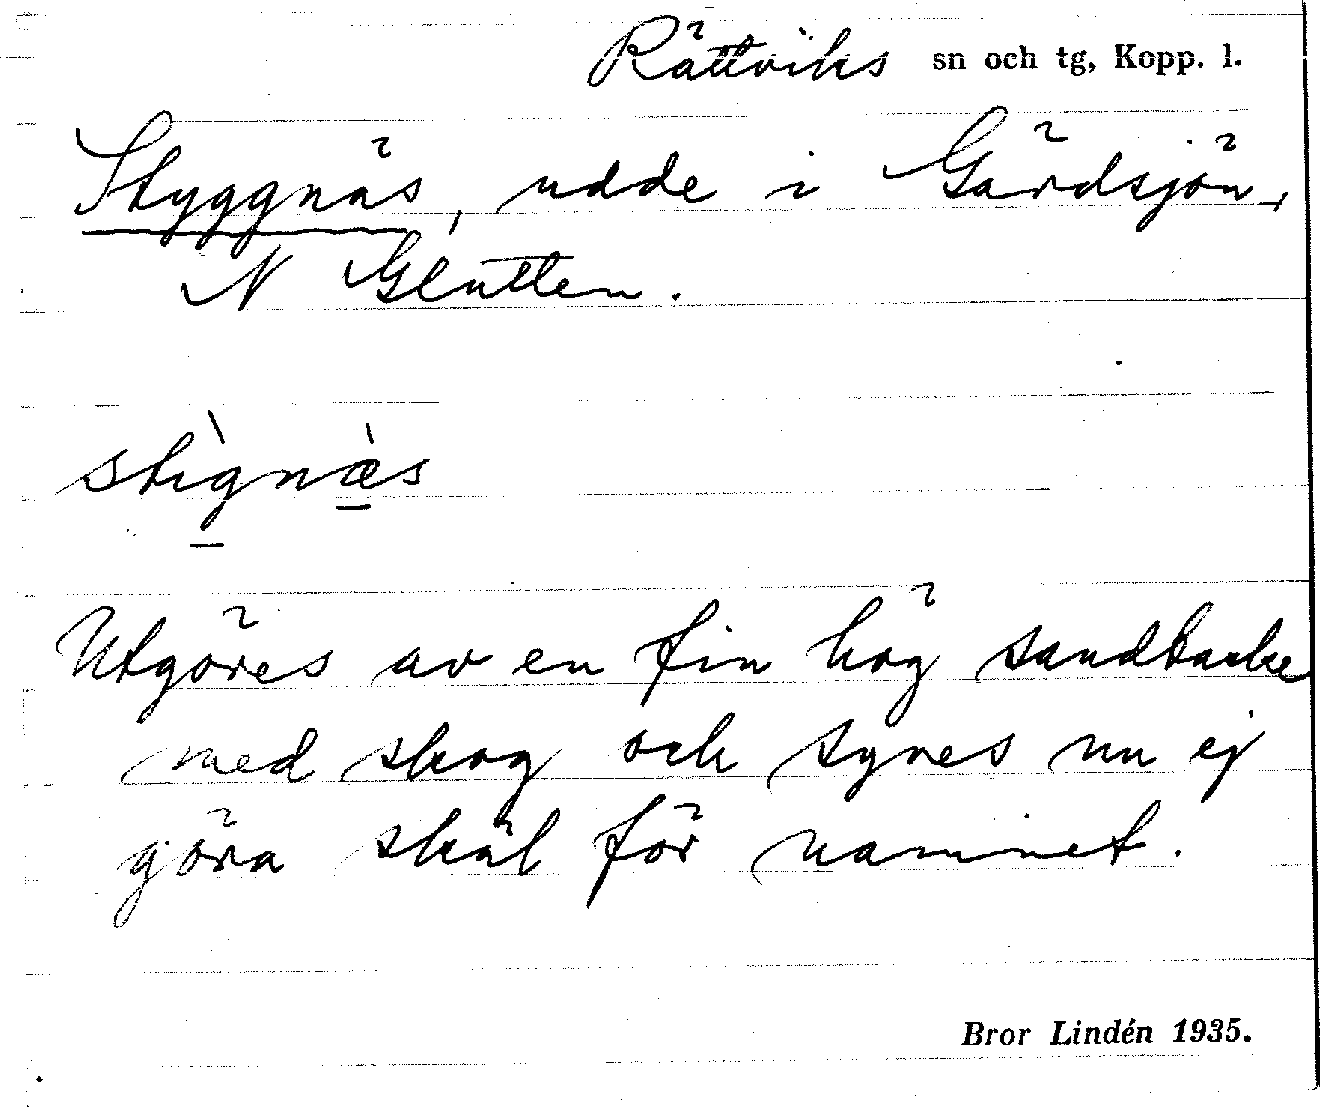 Rättviks sn och tg, Kopp. l.
Styggnäs, udde i Gärdsjön,
N Glutten.
stìgnæ̀s
Utgöres av en fin hög sandbacke
med skog och synes nu ej
göra skäl för namnet.
Bror Lindén 1935.